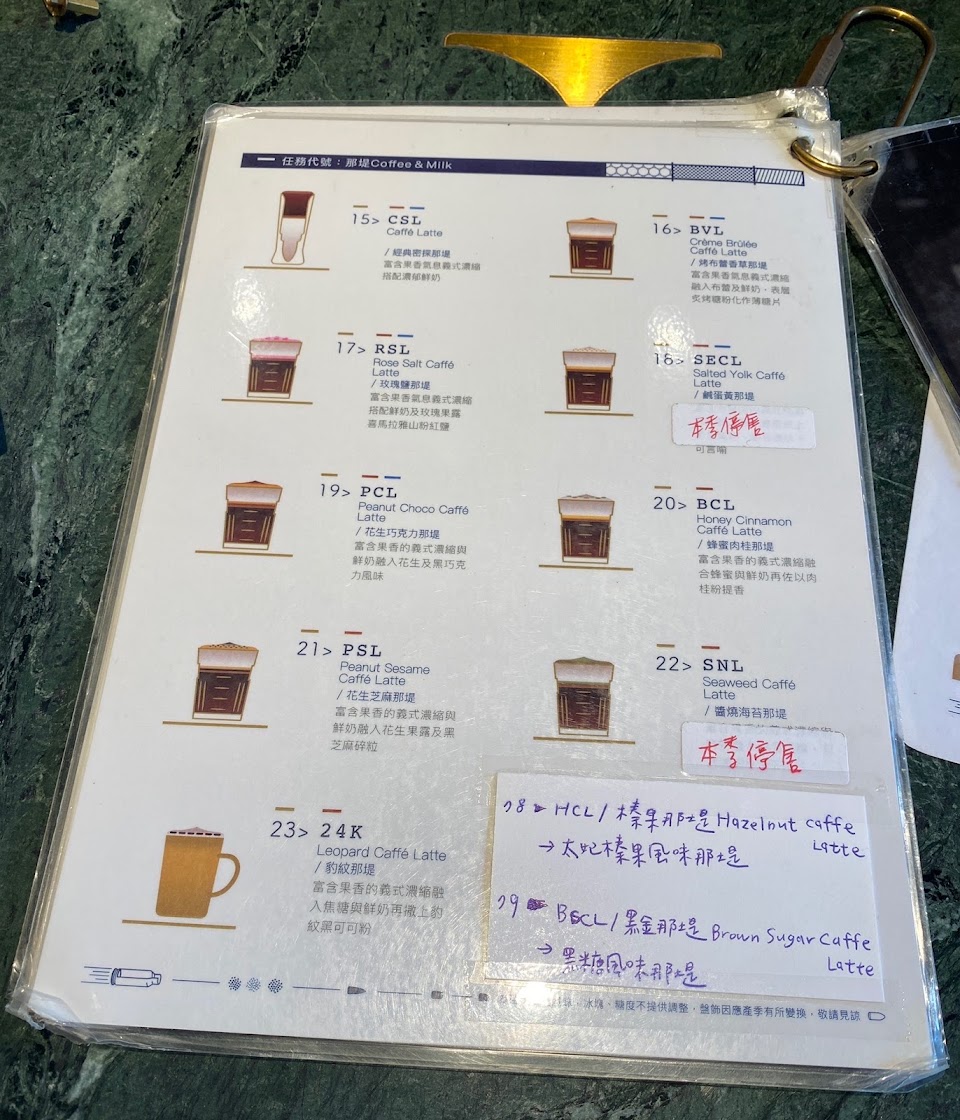 任務代號：那堤Coffee & Milk
15> CSL
Caffé Latte
/ 經典密探那堤
富含果香氣息義式濃縮
搭配濃郁鮮奶
16> BVL
Crème Brûlée
Caffé Latte
/ 烤布蕾香草那堤
富含果香氣息義式濃縮
融入布蕾及鮮奶，表層
炙烤糖粉化作薄糖片
17> RSL
Rose Salt Caffé
Latte
/ 玫瑰鹽那堤
富含果香氣息義式濃縮
搭配鮮奶及玫瑰果露
喜馬拉雅山粉紅鹽
18> SECL
Salted Yolk Caffé
Latte
/ 鹹蛋黃那堤
本季停售
可言喻
19> PCL
Peanut Choco Caffé
Latte
/ 花生巧克力那堤
富含果香的義式濃縮與
鮮奶融入花生及黑巧克
力風味
20> BCL
Honey Cinnamon
Caffé Latte
/ 蜂蜜肉桂那堤
富含果香的義式濃縮融
合蜂蜜與鮮奶再佐以肉
桂粉提香
21> PSL
Peanut Sesame
Caffé Latte
/ 花生芝麻那堤
富含果香的義式濃縮與
鮮奶融入花生果露及黑
芝麻碎粒
22> SNL
Seaweed Caffé
Latte
/ 醬燒海苔那堤
本季停售
23> 24K
Leopard Caffé Latte
/ 豹紋那堤
富含果香的義式濃縮融
入焦糖與鮮奶再撒上豹
紋黑可可粉
78 HCL / 榛果那堤 Hazelnut caffe
Latte
→ 太妃榛果風味那堤
79 BSCL / 黑金那堤 Brown Sugar Caffe
Latte
→ 黑糖風味那堤
冰塊、糖度不提供調整，盤飾因應產季有所變換，敬請見諒